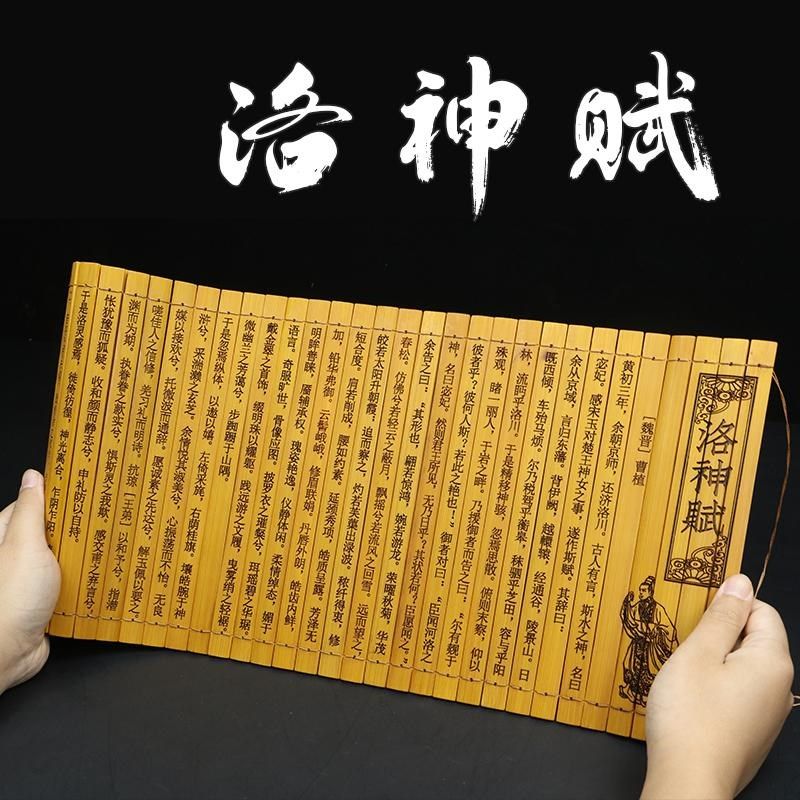 洛神赋
洛神賦
[魏晋] 曹植
黄初三年，余朝京师，还济洛川。古人有言，斯水之神，名曰
宓妃。感宋玉对楚王神女之事，遂作斯赋。其辞曰：
余从京域，言归东藩。背伊阙，越轘辕，经通谷，陵景山。日
既西倾，车殆马烦。尔乃税驾乎蘅皋，秣驷乎芝田，容与乎阳
林，流眄乎洛川。于是精移神骇，忽焉思散。俯则未察，仰以
殊观，睹一丽人，于岩之畔。乃援御者而告之曰：“尔有觌于
彼者乎？彼何人斯？若此之艳也！”御者对曰：“臣闻河洛之
神，名曰宓妃。然则君王所见，无乃日乎？其状若何？臣愿闻之。”
余告之曰：“其形也，翩若惊鸿，婉若游龙。荣曜秋菊，华茂
春松。仿佛兮若轻云之蔽月，飘飖兮若流风之回雪。远而望之，
皎若太阳升朝霞；迫而察之，灼若芙蕖出渌波。秾纤得衷，修
短合度。肩若削成，腰如约素。延颈秀项，皓质呈露。芳泽无
加，铅华弗御。云髻峨峨，修眉联娟。丹唇外朗，皓齿内鲜，
明眸善睐，靥辅承权。瑰姿艳逸，仪静体闲。柔情绰态，媚于
语言。奇服旷世，骨像应图。披罗衣之璀粲兮，珥瑶碧之华琚。
戴金翠之首饰，缀明珠以耀躯。践远游之文履，曳雾绡之轻裾。
微幽兰之芳蔼兮，步踟蹰于山隅。
于是忽焉纵体，以遨以嬉。左倚采旄，右荫桂旗。攘皓腕于神
浒兮，采湍濑之玄芝。余情悦其淑美兮，心振荡而不怡。无良
媒以接欢兮，托微波而通辞。愿诚素之先达兮，解玉佩以要之。
嗟佳人之信修，羌习礼而明诗。抗琼[王第]以和予兮，指潜
渊而为期。执眷眷之款实兮，惧斯灵之我欺。感交甫之弃言兮，
怅犹豫而狐疑。收和颜而静志兮，申礼防以自持。
于是洛灵感焉，徙倚彷徨，神光离合，乍阴乍阳。